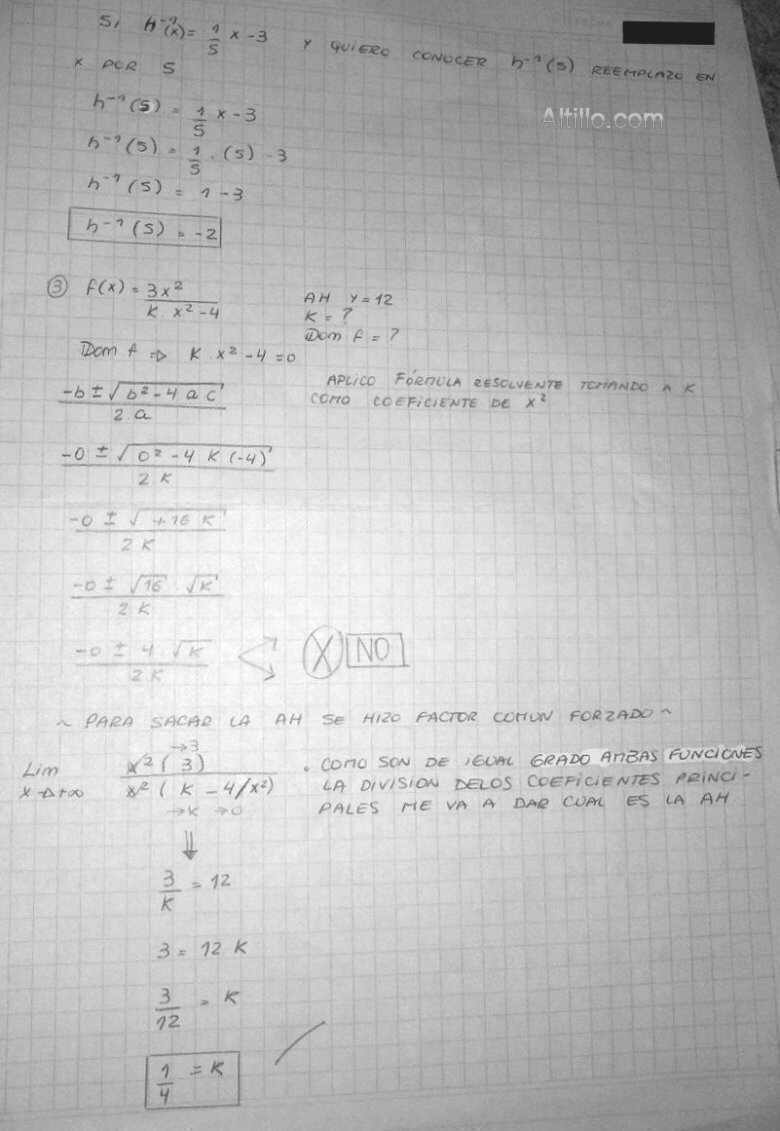 Si h⁻¹(x) = 1/5 x - 3 Y QUIERO CONOCER h⁻¹(5) REEMPLAZO EN
X POR 5
Altillo.com
h⁻¹(5) = 1/5 x - 3
h⁻¹(5) = 1/5 . (5) - 3
h⁻¹(5) = 1 - 3
h⁻¹(5) = -2
③ f(x) = 3x² / K x² - 4
AH Y = 12
K = ?
Dom f = ?
Dom f => K x² - 4 = 0
APLICO FÓRMULA RESOLVENTE TOMANDO A K
COMO COEFICIENTE DE X²
-b ± √(b² - 4 a c) / 2 a
-0 ± √(0² - 4 K (-4)) / 2 K
-0 ± √(+16 K) / 2 K
-0 ± √16 . √K / 2 K
-0 ± 4 √K / 2K
X NO
~ PARA SACAR LA AH SE HIZO FACTOR COMUN FORZADO ~
→3
Lim x→+∞ x² ( 3 ) / x² ( K - 4/x²)
→K →0
. COMO SON DE IGUAL GRADO AMBAS FUNCIONES
LA DIVISION DE LOS COEFICIENTES PRINCI-
PALES ME VA A DAR CUAL ES LA AH
⇓
3/K = 12
3 = 12 K
3/12 = K
1/4 = K